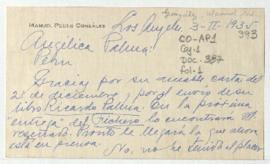 González, Manuel Pedro
MANUEL PEDRO GONZÁLEZ
Los Angeles 3-II-1935
393
CO-AP1
Caj-1
Doc.-387
fol.-1
Angélica Palma:
Perú
Gracias por su amable carta de
21 de diciembre y por el envío de su
libro Ricardo Palma. En la próxima
"entrega" del lo encontrará
reseñado. Pronto le llegará la que ahora
está en prensa.
No, no he tenido el placer